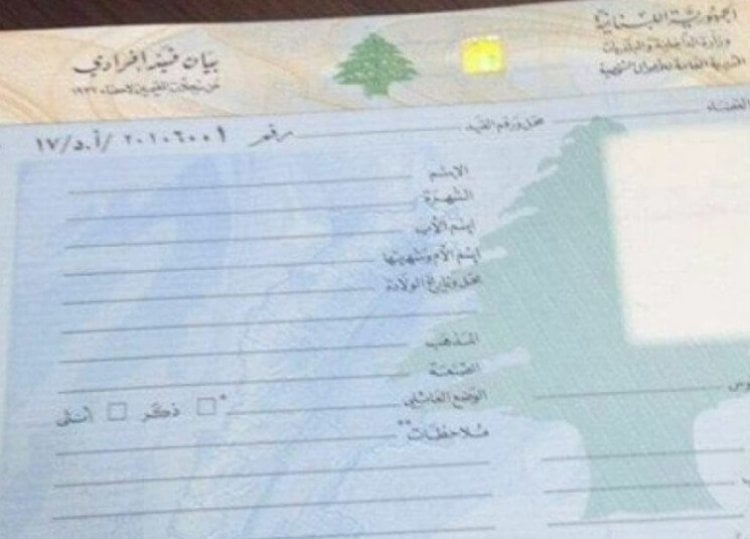 الجمهورية اللبنانية
وزارة الداخلية والبلديات
المديرية العامة للأحوال الشخصية
بيان قيد إفرادي
عن سجلات المقيمين لإحصاء ١٩٣٢
القضاء
محل ورقم القيد
رقم ٢٠١٠٦٠٠١ /أ.د/ ١٧
الإسم
الشهرة
إسم الأب
إسم الأم وشهرتها
محل وتاريخ الولادة
المذهب
الصنعة
الوضع العائلي
* ذكر أنثى
ملاحظات**